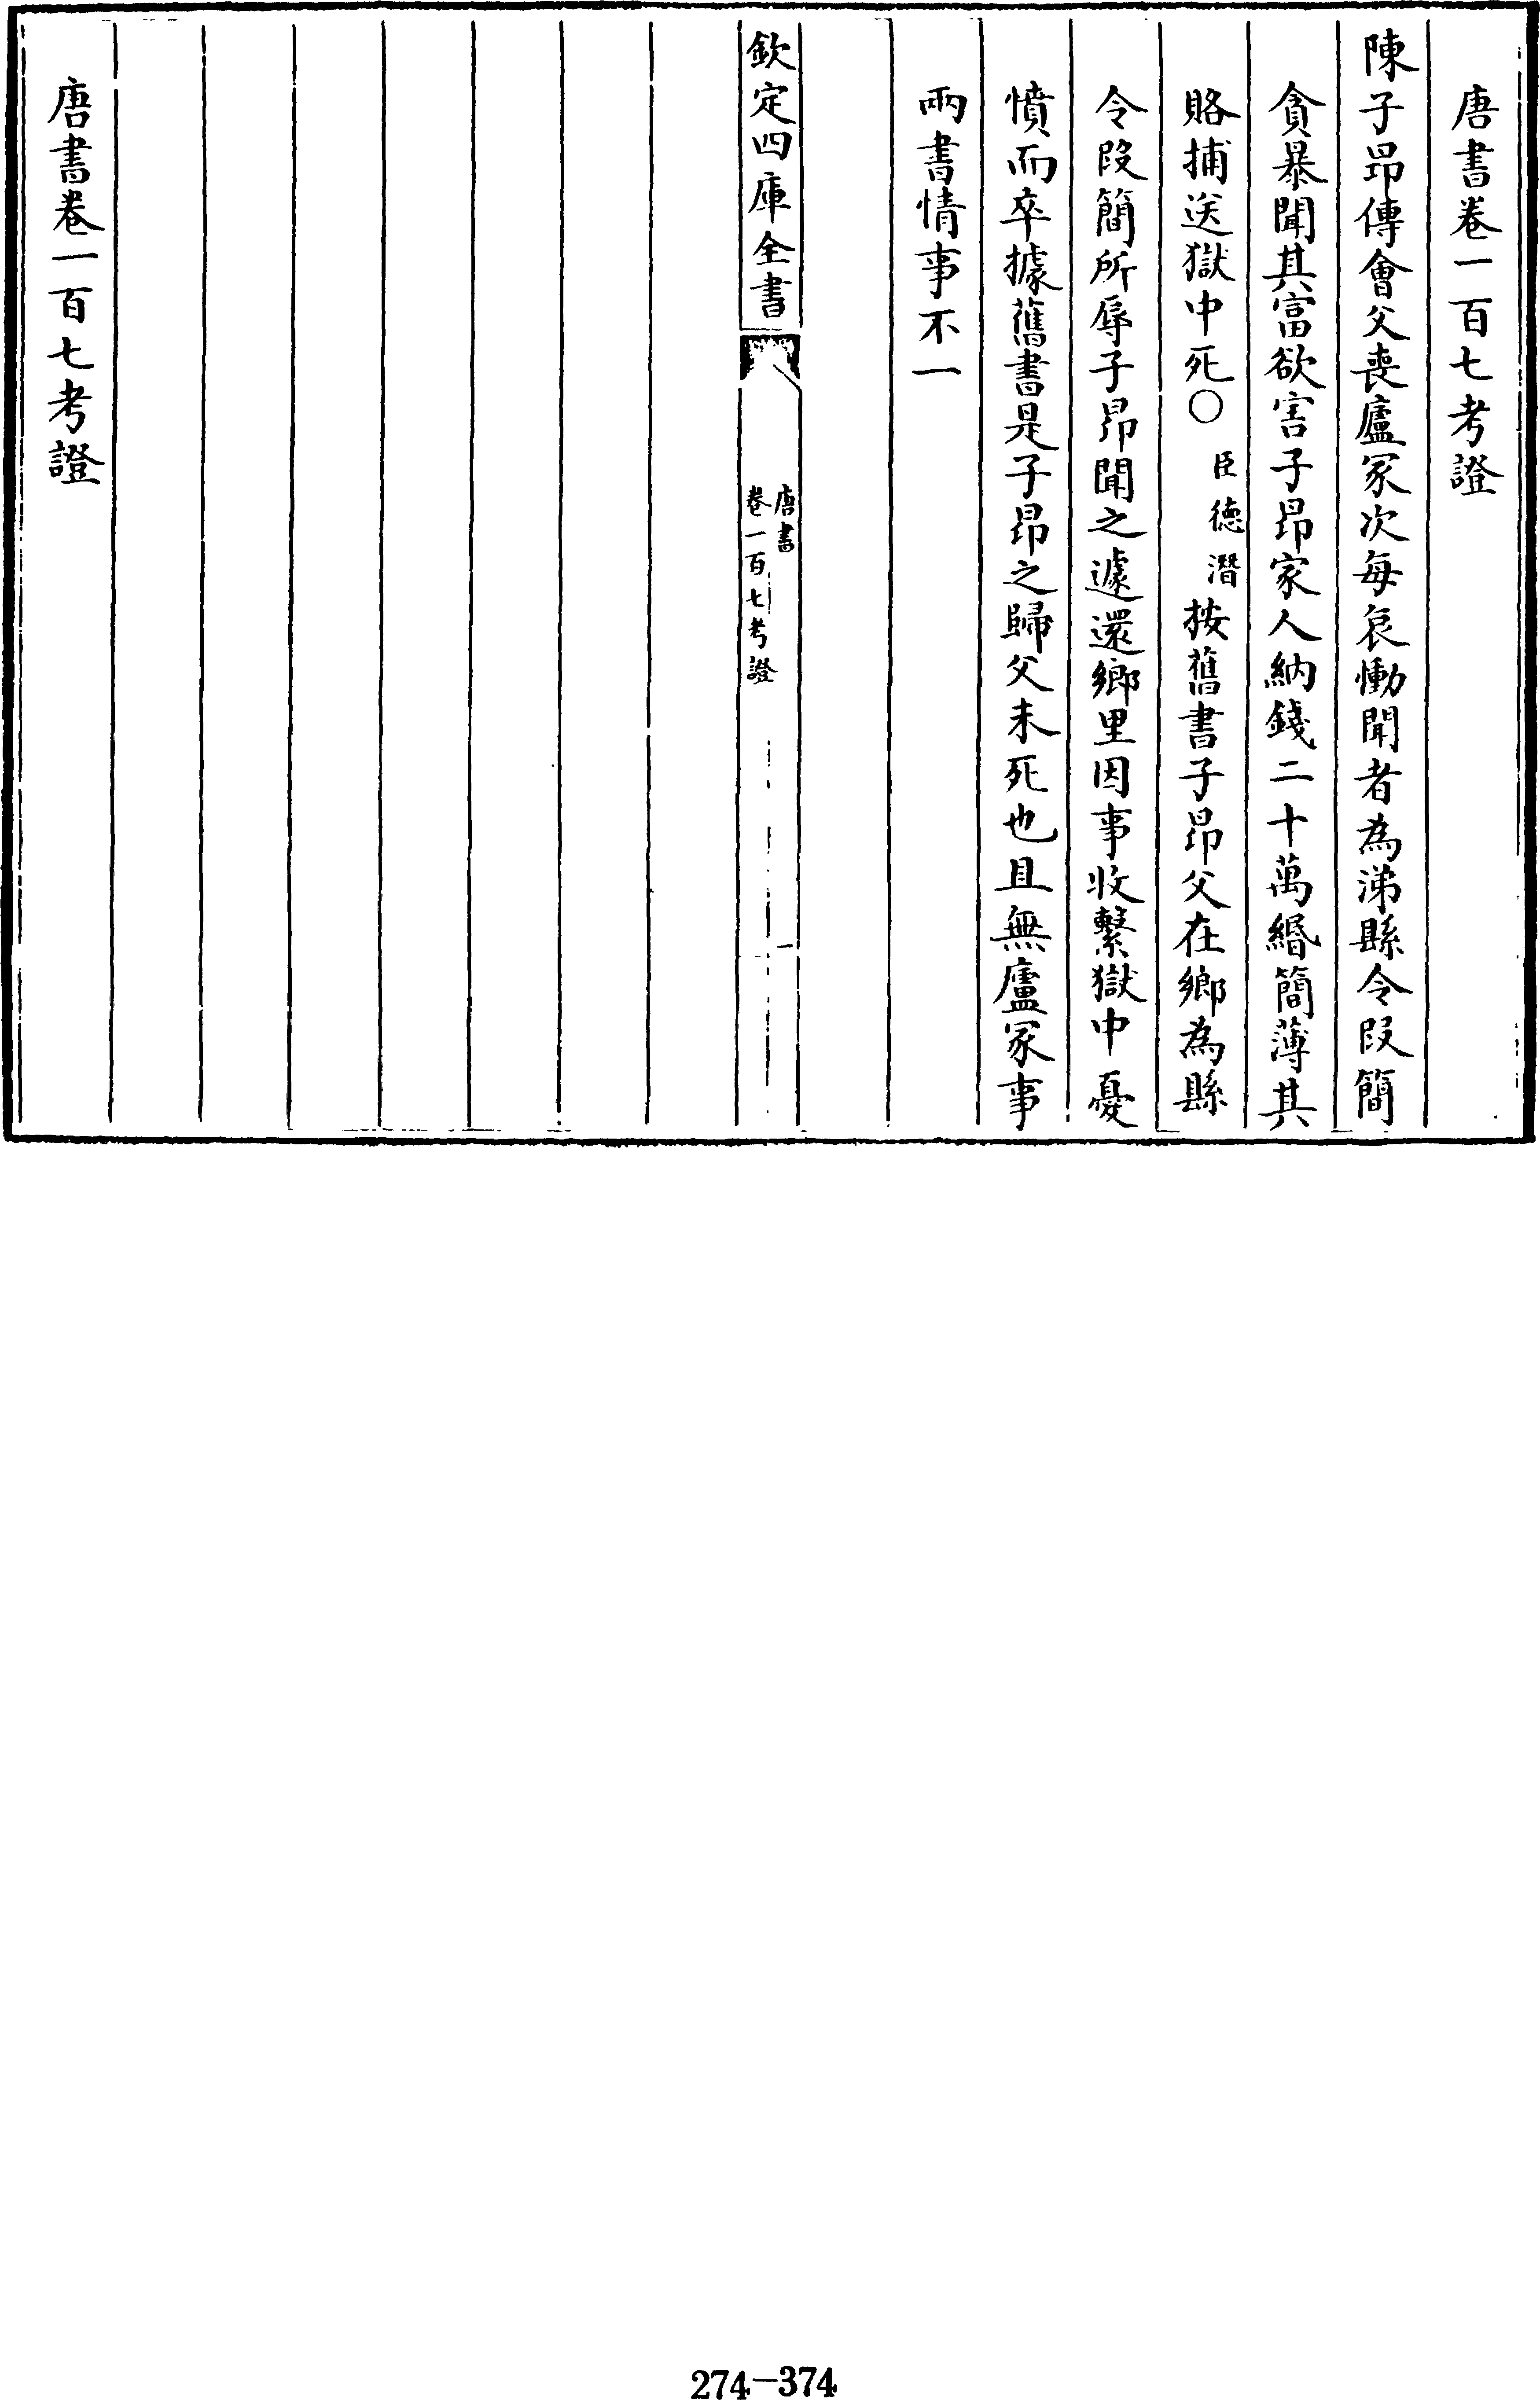 唐書卷一百七考證
陳子昂傳會父喪廬冢次每哀慟聞者為涕縣令段簡
貪暴聞其富欲害子昂家人納錢二十萬緡簡薄其
賂捕送獄中死○臣德潛按舊書子昂父在鄉為縣
令段簡所辱子昂聞之遽還鄉里因事收繫獄中憂
憤而卒據舊書是子昂之歸父未死也且無廬冢事
兩書情事不一
欽定四庫全書
唐書
卷一百七考證
一
唐書卷一百七考證
274-374